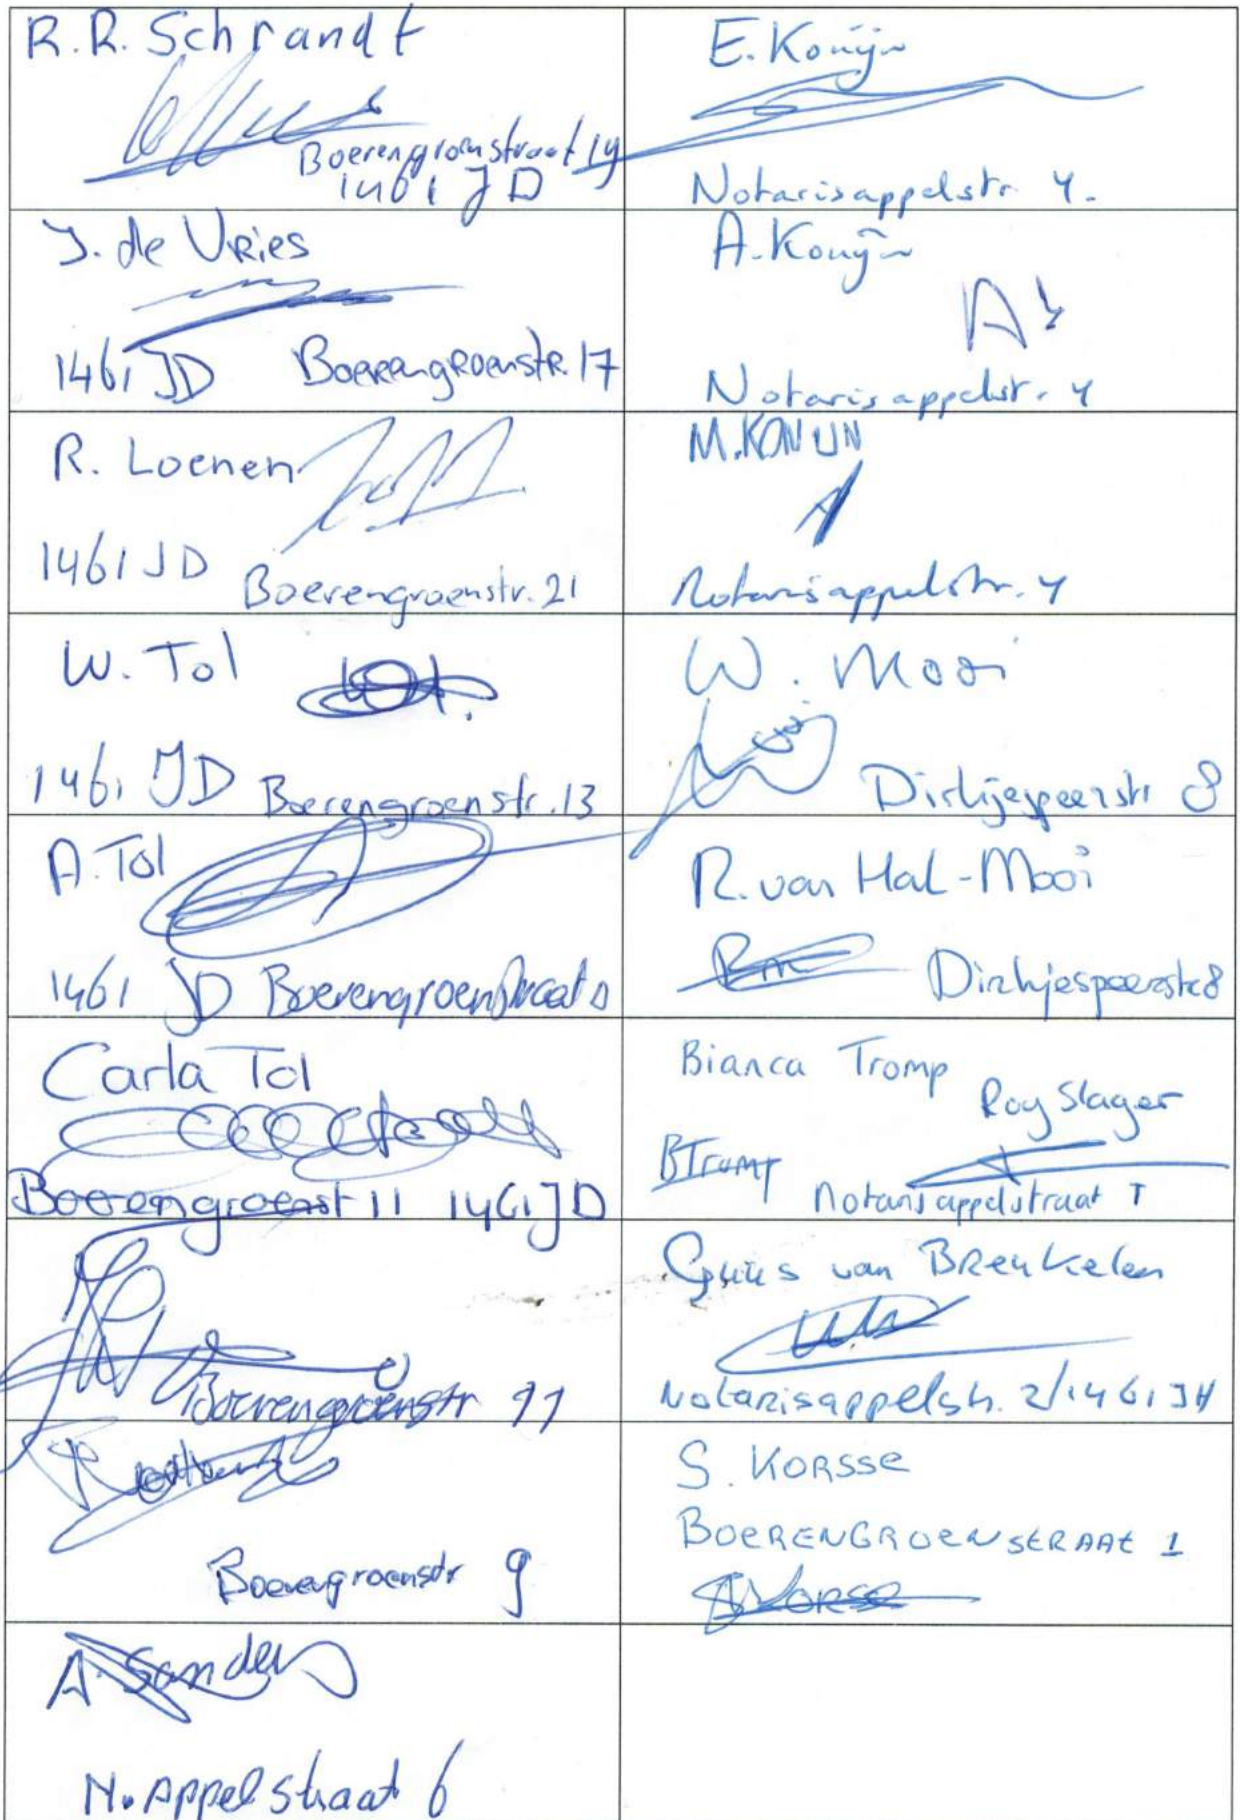 R.R. Schrandt
Boerengroenstraat 19
1461 JD
E. Konijn
Notarisappelstr. 4.
J. de Vries
1461 JD Boerengroenstr. 17
A. Konijn
Notarisappelstr. 4
R. Loenen
1461 JD Boerengroenstr. 21
M. KONIJN
Notarisappelstr. 4
W. Tol
1461 JD Boerengroenstr. 13
W. Mooi
Dirkjespeerstr 8
A. Tol
1461 JD Boerengroenstraat
R. van Hal-Mooi
Dirkjespeerstr 8
Carla Tol
Boerengroenst 11 1461 JD
Bianca Tromp
Roy Slager
BTromp
Notarisappelstraat
Boerengroenstr 11
Guus van Breukelen
Notarisappelstr. 2/1461 JH
Boerengroenstr 9
S. KORSSE
BOERENGROENSTRAAT 1
SKorsse
A. Sanders
N. Appelstraat 6